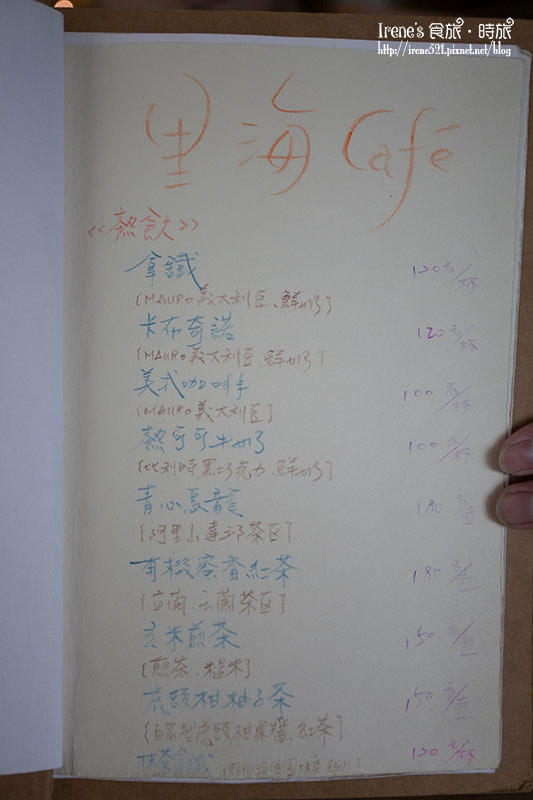 Irene's 食旅‧時旅
http://irene521.pixnet.net/blog
里海 Café
<<熱飲>>
拿鐵 120元/杯
(MAURO義大利豆、鮮奶)
卡布奇諾 120元/杯
(MAURO義大利豆、鮮奶)
美式咖啡 100元/杯
(MAURO義大利豆)
熱可可牛奶 100元/杯
(比利時黑巧克力、鮮奶)
青心烏龍 180元/壺
(阿里山達邦茶區)
有機蜜香紅茶 180元/壺
(宜蘭、玉蘭茶區)
玄米煎茶 150元/壺
(煎茶、糙米)
虎頭柑柚子茶 150元/壺
(自家製虎頭柑果醬、紅茶)
抹茶拿鐵 120元/杯